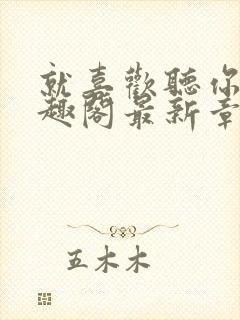 就喜歡聽你
趣閣最新章
五木木